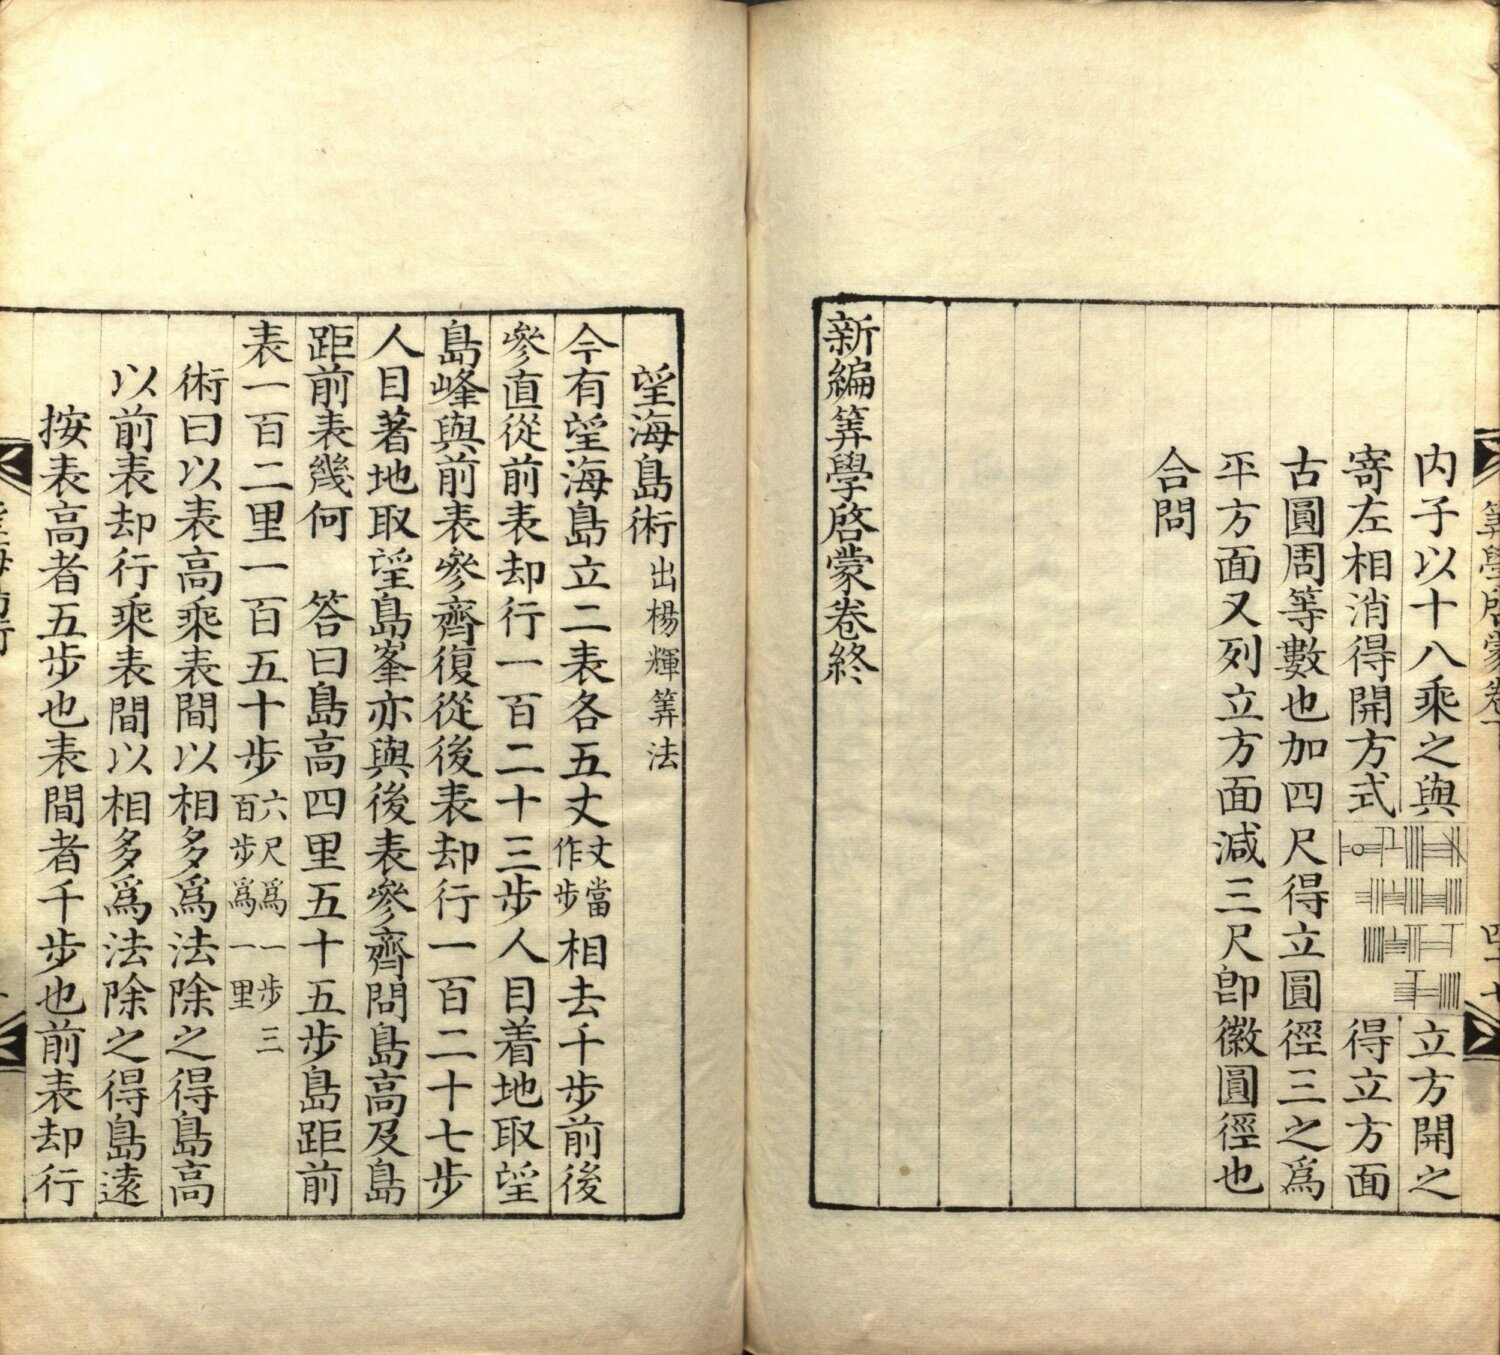 筭學啓蒙卷下
四十七
内子以十八乘之與
立方開之
寄左相消得開方式
得立方面
古圓周等數也加四尺得立圓徑三之爲
平方面又列立方面減三尺卽徽圓徑也
合問
新編筭學啓蒙卷終
望海島術出楊輝筭法
今有望海島立二表各五丈丈當作步相去千步前後
參直從前表却行一百二十三步人目着地取望
島峰與前表參齊復從後表却行一百二十七步
人目著地取望島峯亦與後表參齊問島高及島
距前表幾何　答曰島高四里五十五步島距前
表一百二里一百五十步六尺爲一步三百步爲一里
術曰以表高乘表間以相多爲法除之得島高
以前表却行乘表間以相多爲法除之得島遠
按表高者五步也表間者千步也前表却行